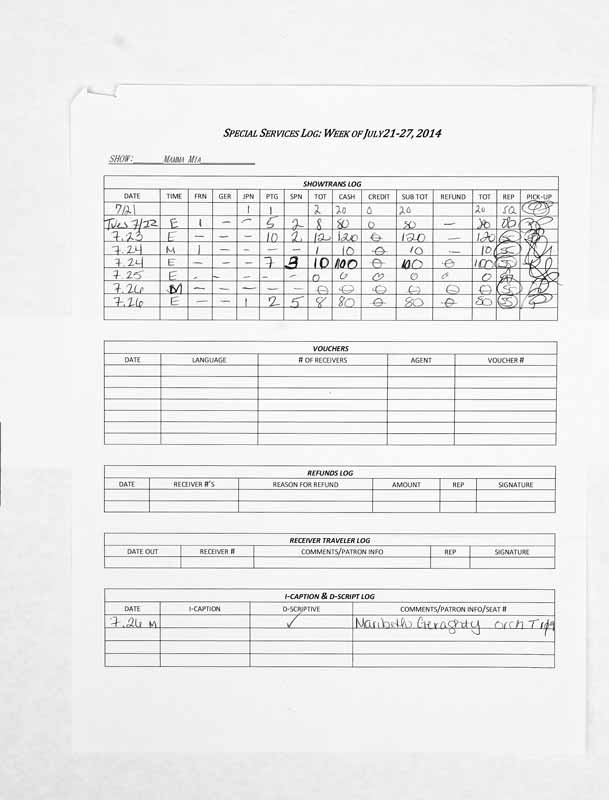 SPECIAL SERVICES LOG: WEEK OF JULY21-27, 2014
SHOW: MAMMA MIA
SHOWTRANS LOG
DATE TIME FRN GER JPN PTG SPN TOT CASH CREDIT SUB TOT REFUND TOT REP PICK-UP
7/21 1 1 2 20 0 20 20
Tues 7/22 E 1 - 5 2 8 80 0 80 - 80
7.23 E - - - 10 2 12 120 0 120 - 120
7.24 M 1 - - - - 1 10 0 10 - 10
7.24 E - - - 7 3 10 100 0 100 0 100
7.25 E - - - - - 0 0 0 0 0 0
7.26 M - - - - - 0 0 0 0 0 0
7.26 E - - 1 2 5 8 80 0 80 0 80
VOUCHERS
DATE LANGUAGE # OF RECEIVERS AGENT VOUCHER #
REFUNDS LOG
DATE RECEIVER #'S REASON FOR REFUND AMOUNT REP SIGNATURE
RECEIVER TRAVELER LOG
DATE OUT RECEIVER # COMMENTS/PATRON INFO REP SIGNATURE
I-CAPTION & D-SCRIPT LOG
DATE I-CAPTION D-SCRIPTIVE COMMENTS/PATRON INFO/SEAT #
7.26 M ✓ Maribeth Geraghty orch T